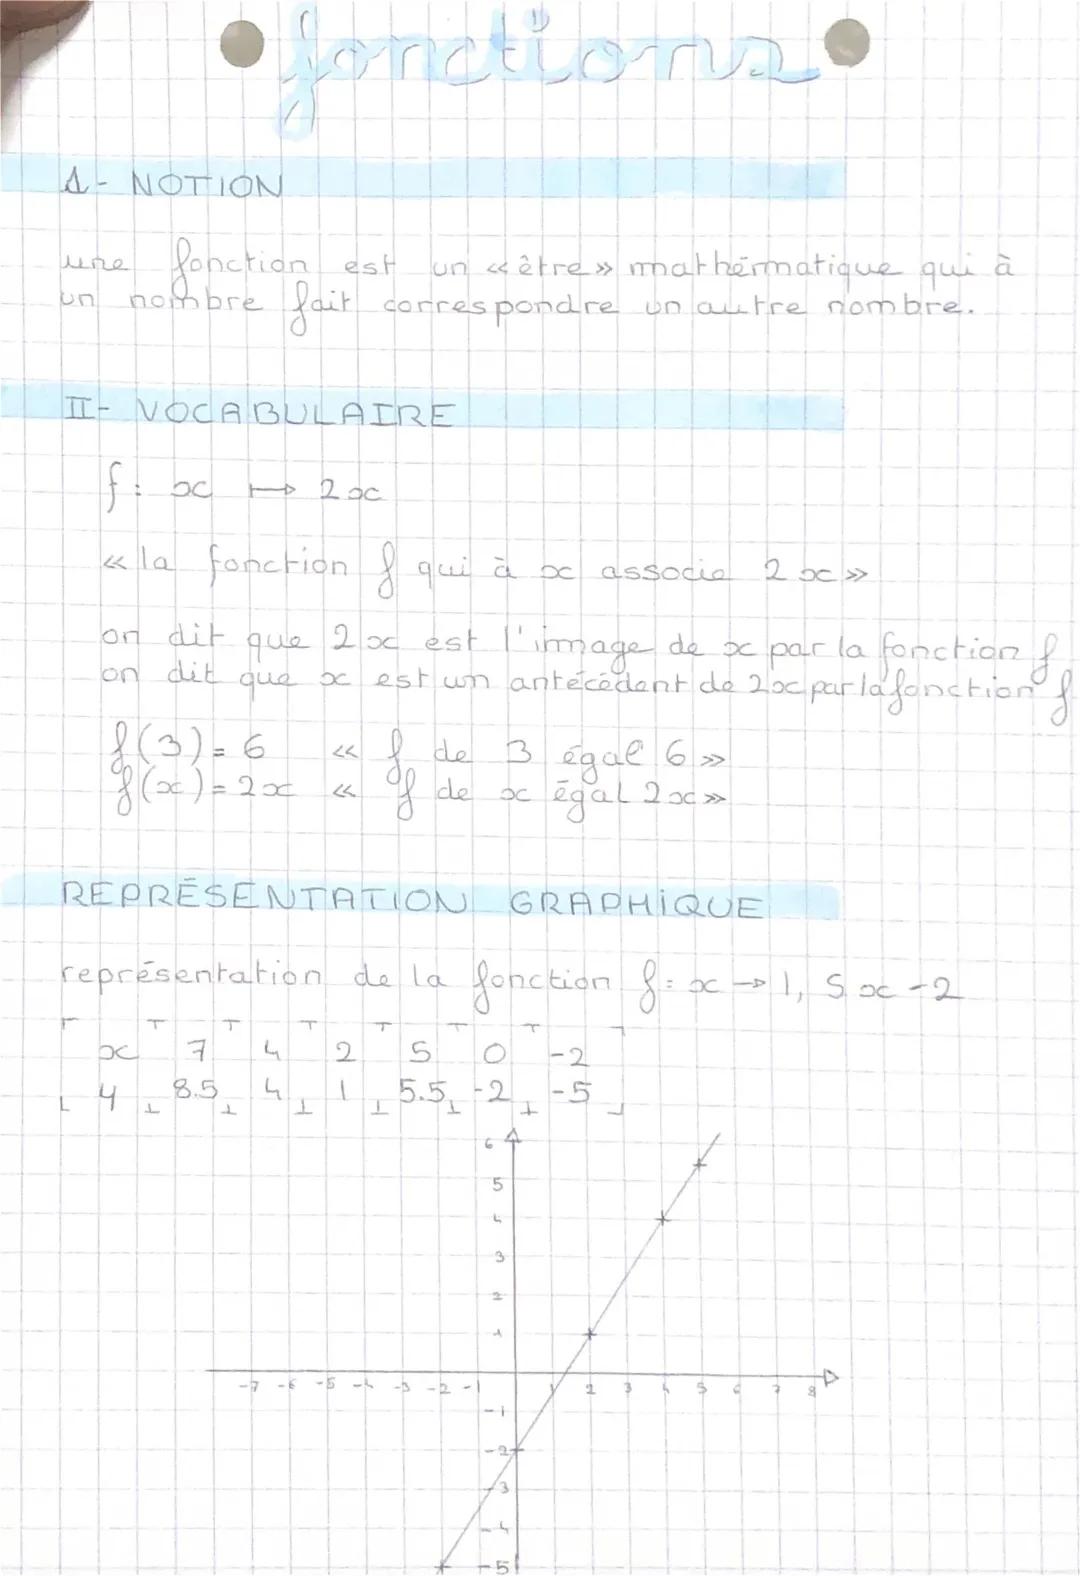 fonctions
1- NOTION
une fonction est un «être» mathématique qui à
un nombre fait correspondre un autre nombre.
II- VOCABULAIRE
f: x ↦ 2x
«la fonction f qui à x associe 2x»
on dit que 2x est l'image de x par la fonction f
on dit que x est un antécédent de 2x par la fonction f
f(3)=6 « f de 3 égal 6»
f(x)=2x « f de x égal 2x»
REPRÉSENTATION GRAPHIQUE
représentation de la fonction f: x → 1,5x-2
x 7 4 2 5 0 -2
y 8.5 4 1 5.5 -2 -5
6
5
4
3
2
1
-7 -6 -5 -4 -3 -2 -1 1 2 3 4 5 6 7 8
-1
-2
-3
-4
-5